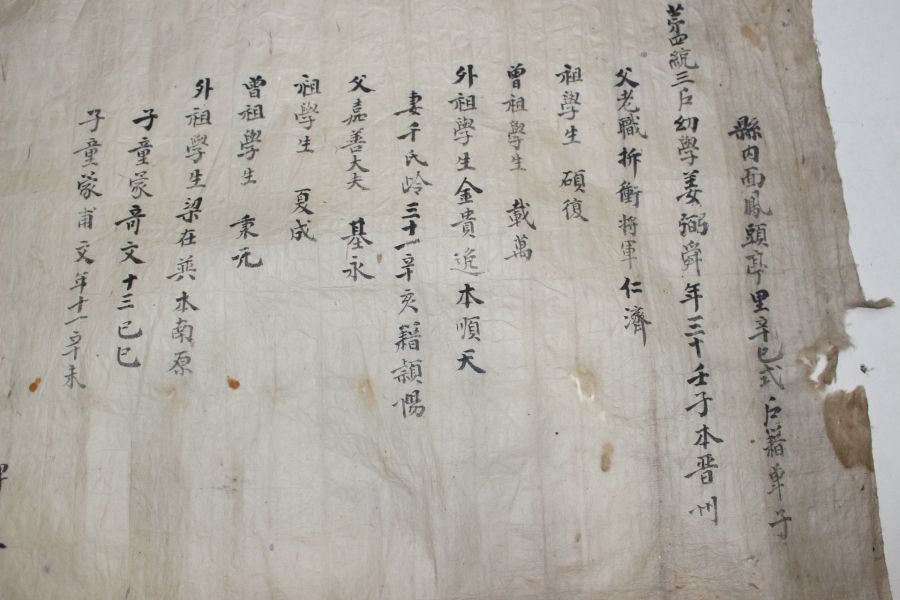 縣內面鳳頭亭里辛巳式戶籍單子
第四統三戶幼學姜弼舜年三十壬子本晋州
父老職折衝將軍仁濟
祖學生 碩復
曾祖學生 載萬
外祖學生金貴逸本順天
妻千氏齡三十一辛亥籍潁陽
父嘉善大夫 基永
祖學生 夏成
曾祖學生 秉元
外祖學生梁在英本南原
子童蒙奇文十三己巳
子童蒙甫文年十一辛未